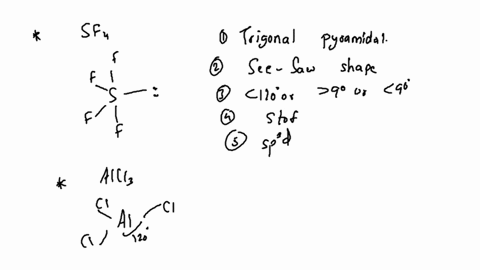 * SF4
F
F
S :
F
F
① Trigonal pyramidal.
② See-Saw shape
③ <120° or >90 or <90°
④ S to F
⑤ sp³d
* AlCl3
Cl
Al Cl
Cl 120°